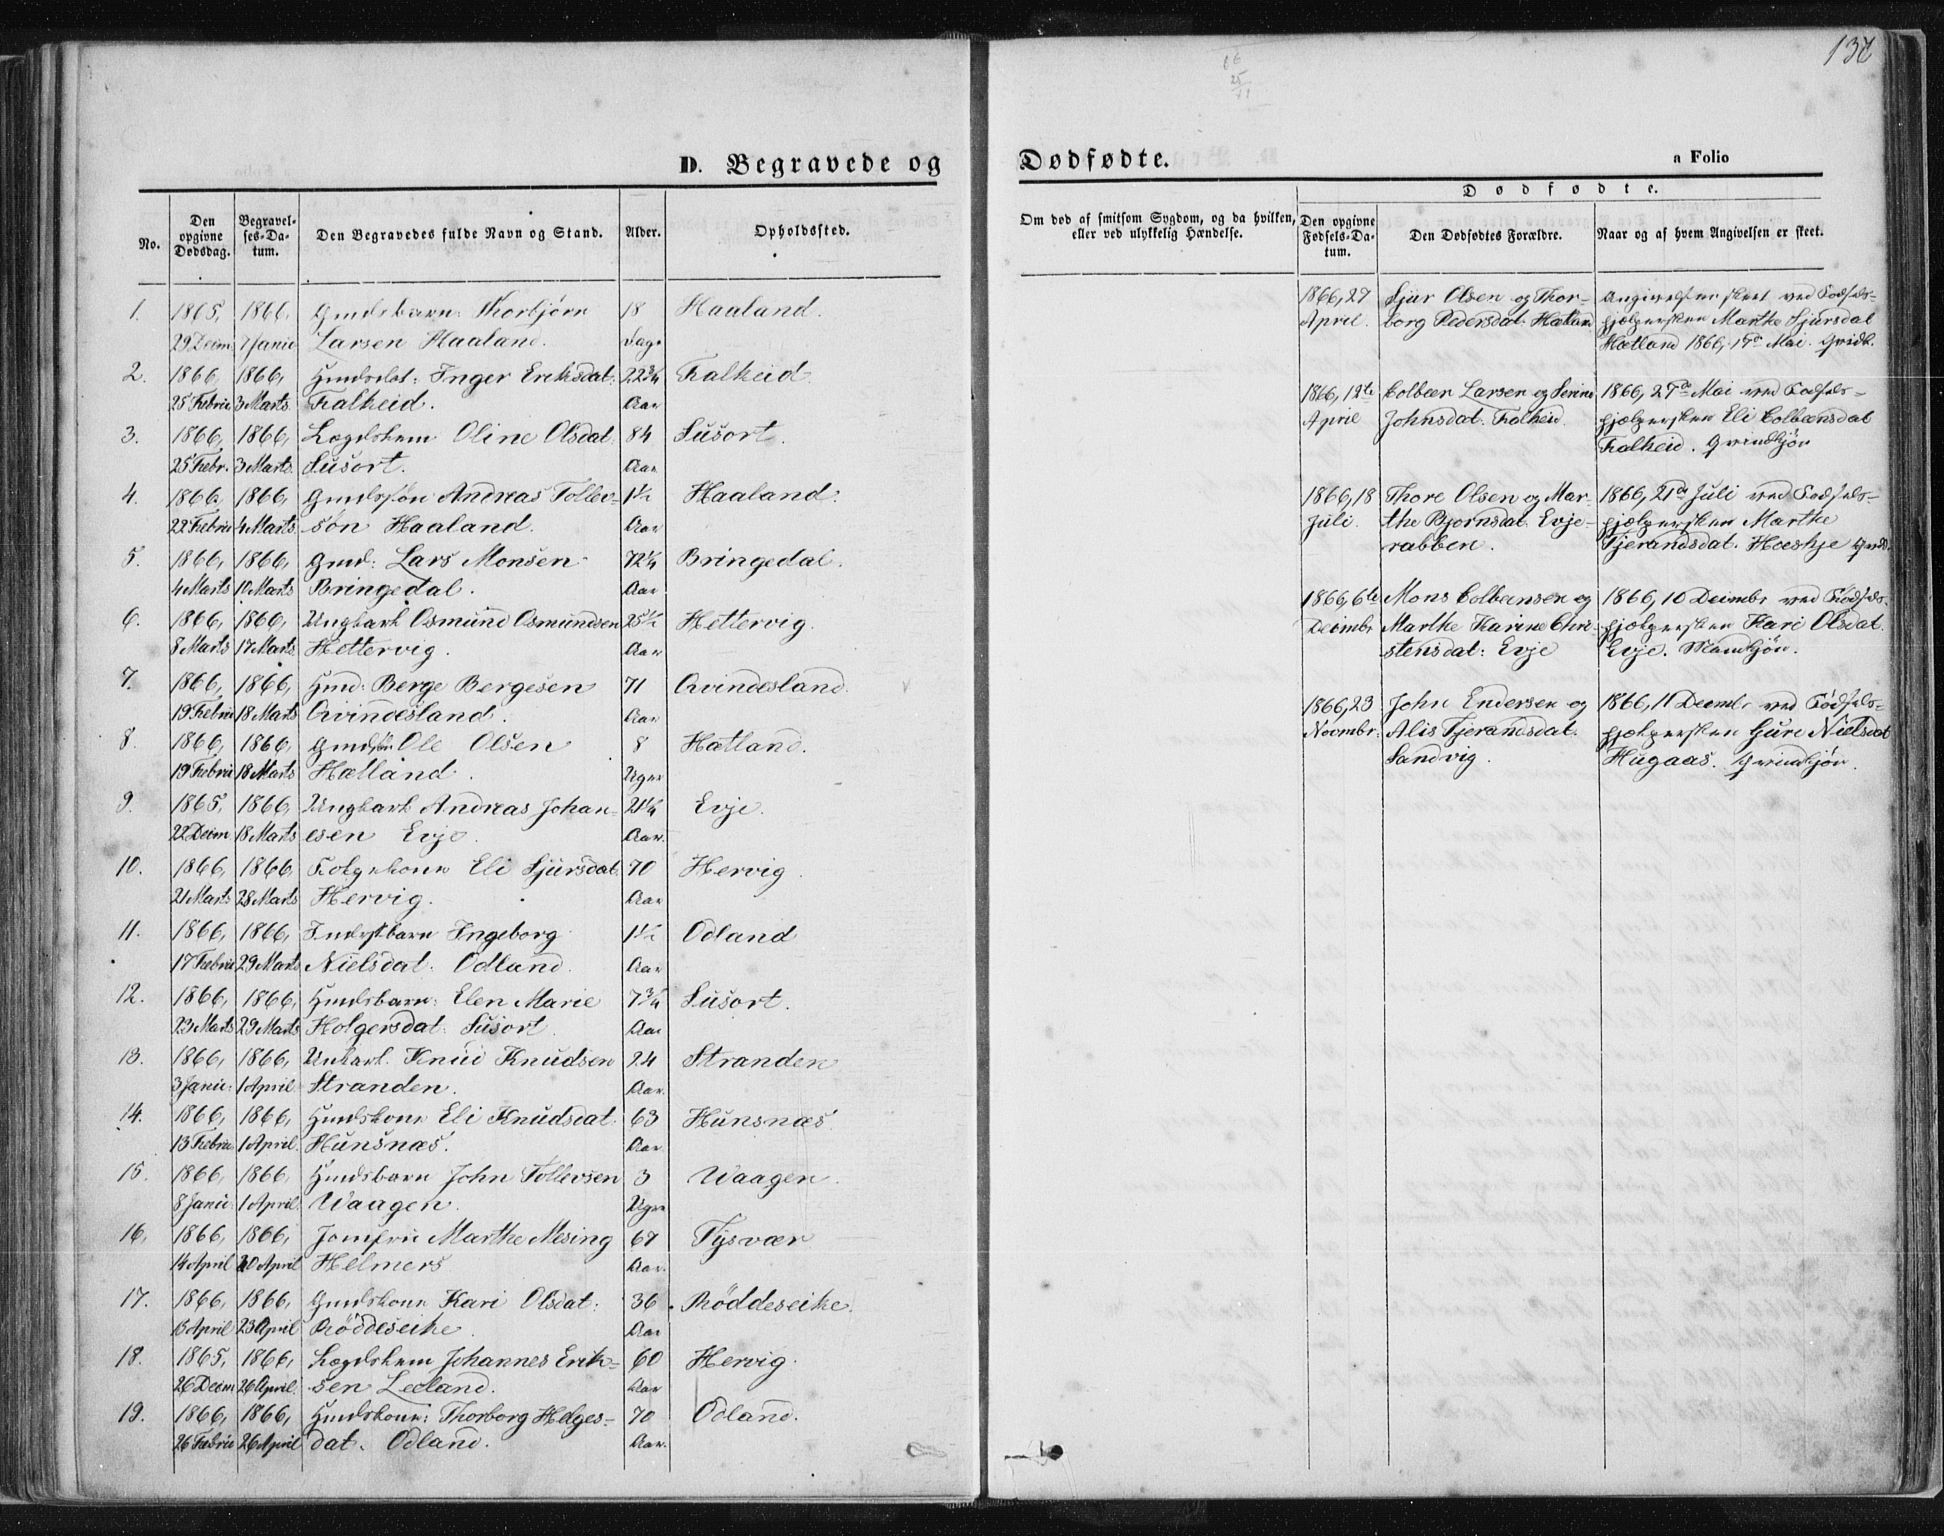 137
66
25
11
D. Begravede og Dødfødte.
a Folio
No.
Den opgivne Dødsdag.
Begravelses-Datum.
Den Begravedes fulde Navn og Stand.
Alder.
Opholdssted.
Om død af smitsom Sygdom, og da hvilken, eller ved ulykkelig Hændelse.
Dødfødte.
Den opgivne Fødsels-Datum.
Den Dødfødtes Forældre.
Naar og af hvem Angivelsen er skeet.
1. 1865, 1866, Gmdsbarn: Thorbjörn 18 Haaland.
29 Decim Janu Larsen Haaland. Dage
2. 1866, 1866, Inger Eriksdat. 22 3/4 Falheid.
25 Febru 3 Marts Falheid. Aar
3. 1866, 1866, Lægdslem Oline Olsdat 84 Susort.
25 Febr. 3 Marts Susort. Aar
4. 1866, 1866, Gmdssøn Andreas Tollev- 1 1/2 Haaland.
22 Febru 4 Marts søn Haaland. Aar
5. 1866, 1866, Gmd: Lars Monsen 72 1/4 Bringedal.
4 Marts 10 Marts Bringedal. Aar
6. 1866, 1866, Ungkarl Osmund Osmundsen 25 1/2 Hettervig.
8 Marts 17 Marts Hettervig. Aar
7. 1866, 1866, Hmd: Berge Bergesen 71 Qvindesland.
19 Febru 18 Marts Qvindesland. Aar
8. 1866, 1866, Ole Olsen 8 Hætland.
19 Febru 18 Marts Hætland. Uger
9. 1865, 1866, Ungkarl Andreas Johan- 21 1/4 Evje.
22 Decim 18 Marts esen Evje. Aar.
10. 1866, 1866, Folgekone Eli Sjursdat. 70 Hervig.
21 Marts 28 Marts Hervig. Aar
11. 1866, 1866, Ingeborg 1 1/2 Odland
17 Febru 29 Marts Nielsdat. Odland. Aar
12. 1866, 1866, Hmdsbarn: Elen Marie 7 3/4 Susort.
23 Marts 29 Marts Holgersdat. Susort. Aar
13. 1866, 1866, Unkarl. Knud Knudsen 24 Stranden
3 Janu: 1 April Stranden. Aar.
14. 1866, 1866, Hmdskone Eli Knudsdat. 63 Hunsnæs.
13 Febru 1 April. Hunsnæs. Aar
15. 1866, 1866, Hmdsbarn John Tollevsen 3 Waagen.
8 Janu: 1 April. Waagen. Uger
16. 1866, 1866, Jomfru Marthe Mesing 67 Tysvær
14 April 20 April Helmers Aar.
17. 1866, 1866, Gmdskone Kari Olsdat: 36 Röddeseike.
13 April 23 April Röddeseike. Aar
18. 1865, 1866, Lægdslem Johannes Erik- 60 Hervig.
26 Decim 26 April. sen Leeland. Aar
19. 1866, 1866, Hmdskone: Thorborg Helges- 70 Odland.
26 Febru 26 April dat. Odland. Aar.
1866, 27 Sjur Olsen og Thor- Angivelsen skeet ved Fødsels-
April. borg Pedersdat. Hætland hjælpersken Marthe Sjursdat
Hætland 1866, 17de Mai.
1866, 12te Colbæn Larsen og Serine 1866, 27de Mai ved Fødsels-
April Johnsdat. Falheid. hjælpersken Eli Colbænsdat
Falheid. Grindhjön
1866, 18 Thore Olsen og Mar- 1866, 21de Juli ved Fødsels-
Juli. the Bjornsdat. Evje- hjælpersken Marthe
rabben. Tjerandsdat. Haskje
1866, 6te Mons Colbænsen og 1866, 10 Decimbr ved Fødsels-
Decimbr Marthe Karine Chri- hjælpersken Kari Olsdat.
stensdat: Evje Evje.
1866, 23 John Endersen og 1866, 11 Decmbr ved Födsels-
Novmbr. Alis Tjerandsdat. hjælpersken Guri Nielsdat
Sandvig. Hugaas. Grindhjön.